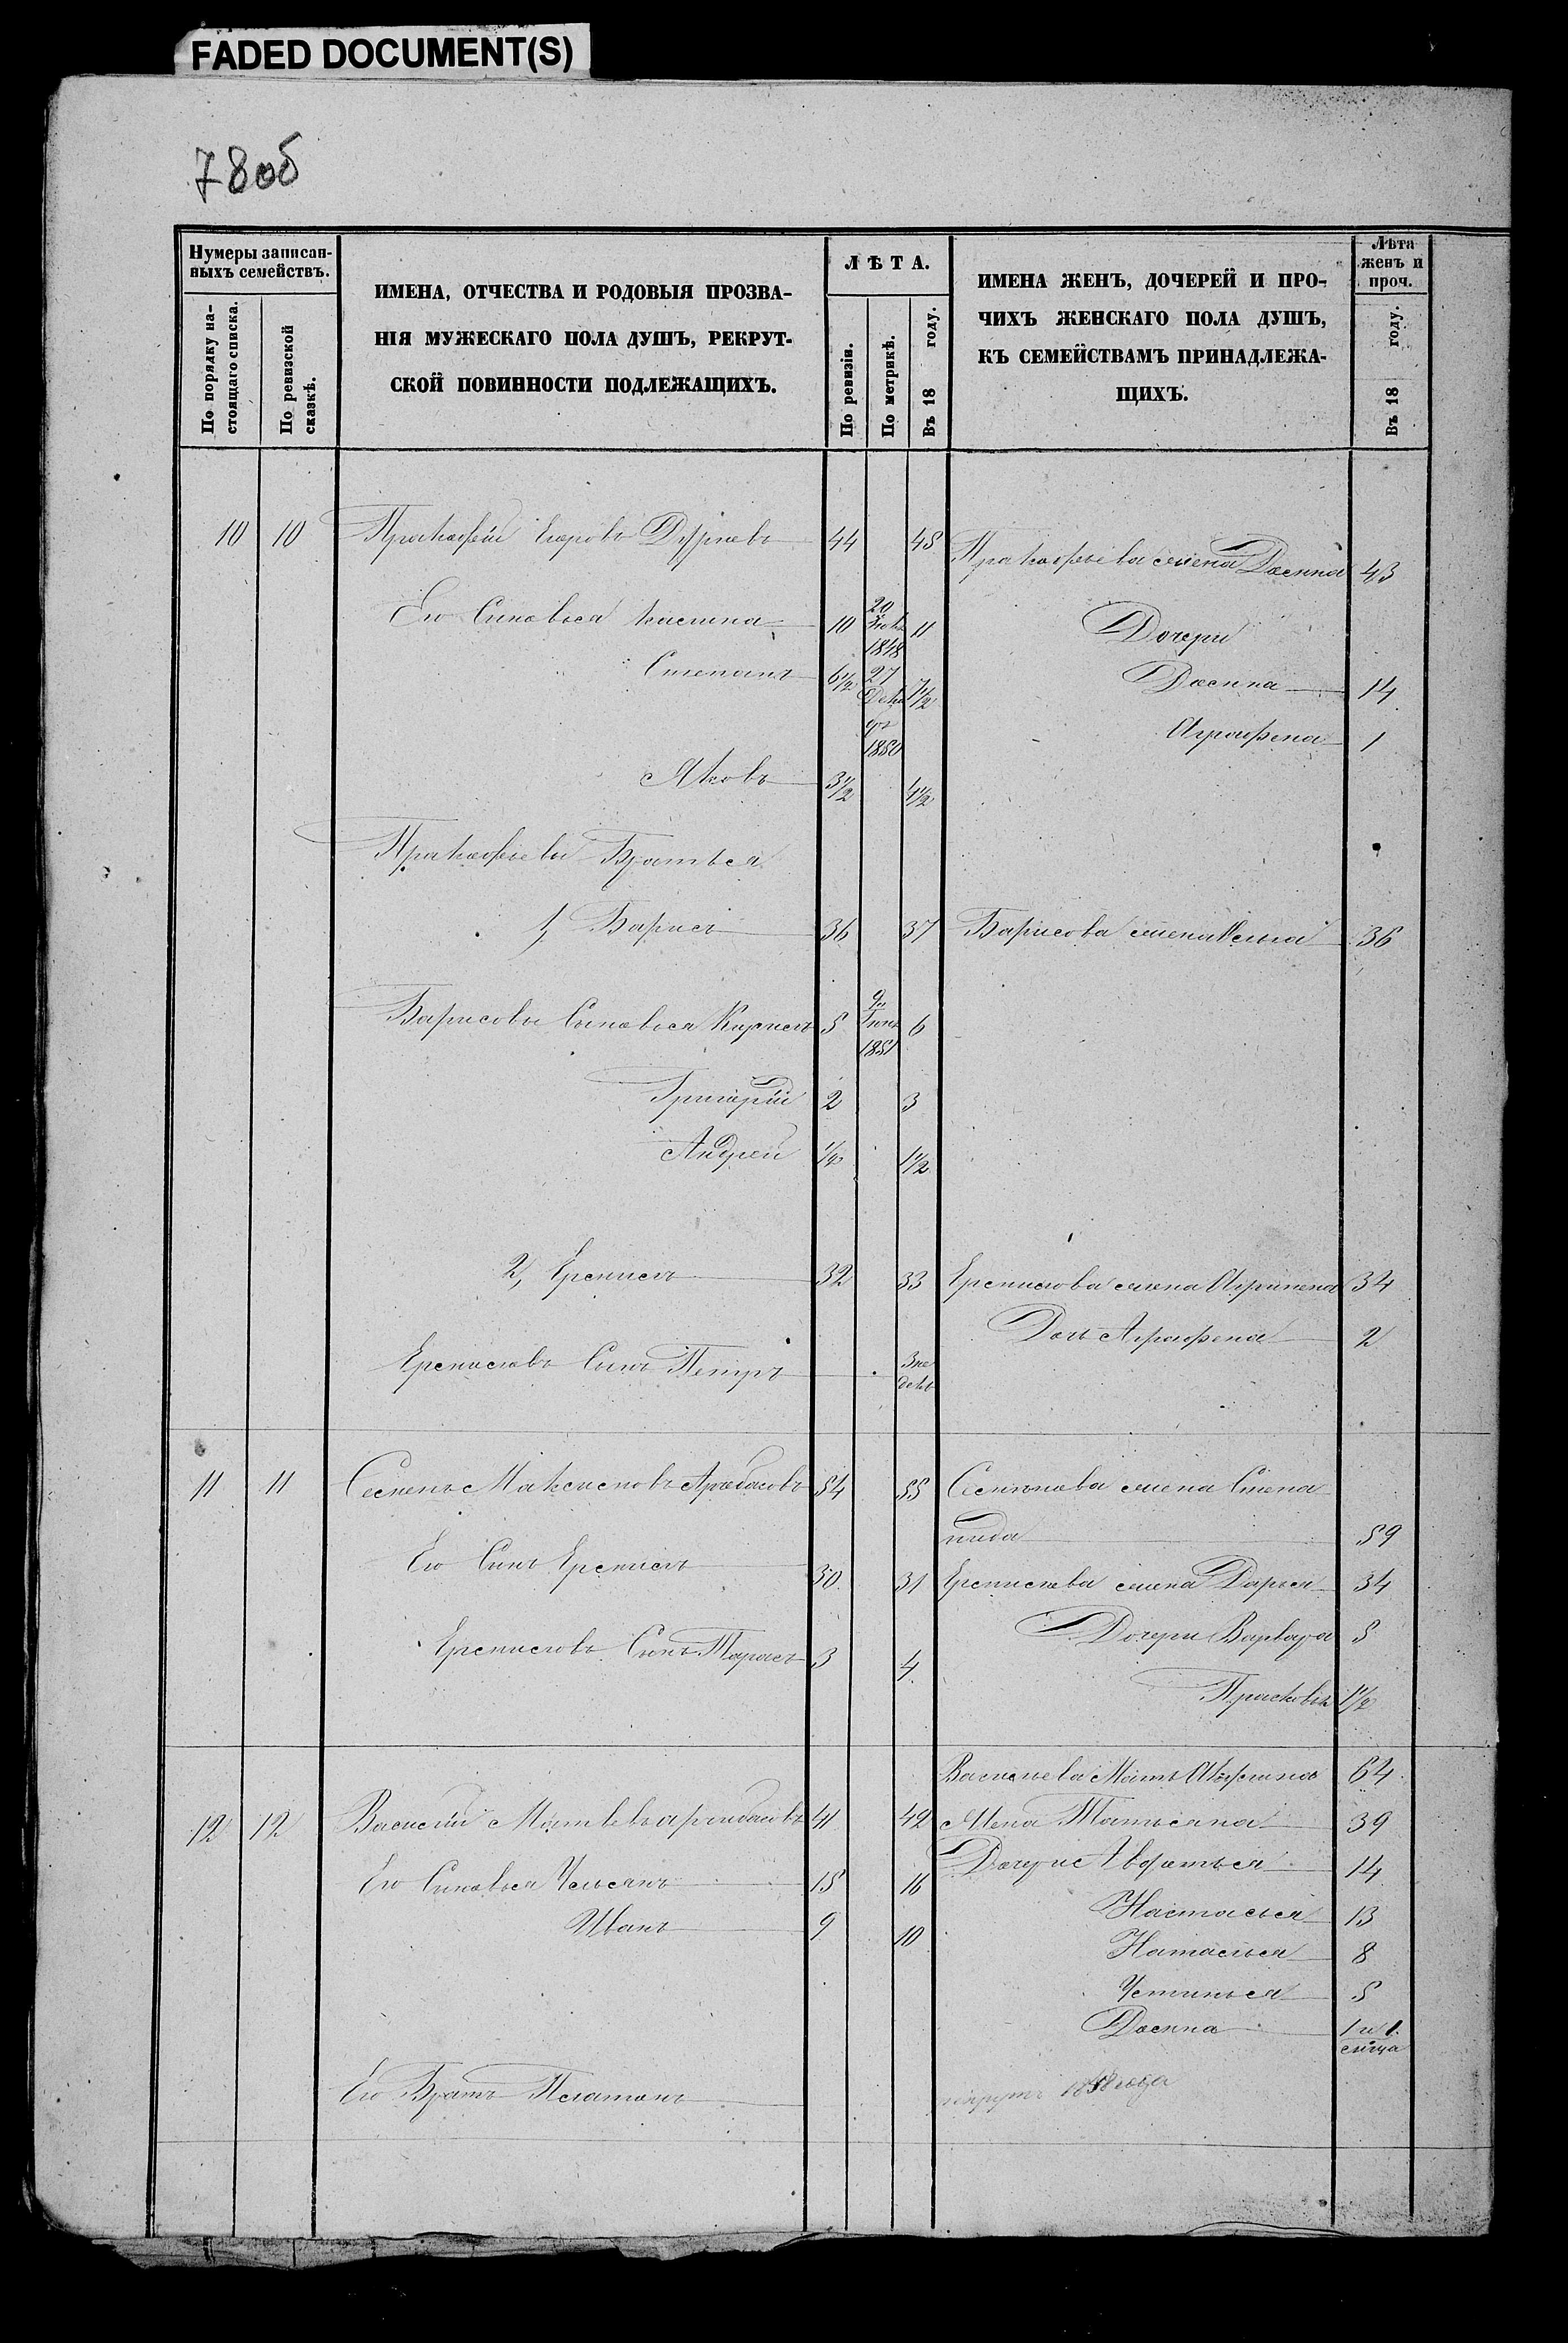 FADED DOCUMENT(S)
78об
Нумеры записан-
ныхъ семействъ.
По порядку на-
стоящаго списка.
По ревизской
сказкѣ.
ИМЕНА, ОТЧЕСТВА И РОДОВЫЯ ПРОЗВА-
НІЯ МУЖЕСКАГО ПОЛА ДУШЪ, РЕКРУТ-
СКОЙ ПОВИННОСТИ ПОДЛЕЖАЩИХЪ.
ЛѢТА.
По ревизіи.
По метрикѣ.
Въ 18 году.
ИМЕНА ЖЕНЪ, ДОЧЕРЕЙ И ПРО-
ЧИХЪ ЖЕНСКАГО ПОЛА ДУШЪ,
КЪ СЕМЕЙСТВАМЪ ПРИНАДЛЕЖА-
ЩИХЪ.
Лѣта
женъ и
проч.
Въ 18 году.
10 10 Пракофій Егоровъ 44 45
Пракофьева жена Домна 43
Его Синовья 10 20 1848 11
Дочери
Степанъ 6½ 27 Дека бр 1850 7½
Домна 14
Аграфена 1
Яковъ 3½ 4½
Пракофьевы Братья
1, Барисъ 36 37 Барисова жена 36
Барисовы Сыновья Кирилъ 5 9 Іюня 1851 6
Григорій 2 3
Андрей ¼ 1½
2, Ермилъ 32 33 Ермилова жена Агрипена 34
Дочь Аграфена 2
Ермиловъ Сынъ Петръ 3 не дель
11 11 Семенъ Максимовъ 54 55 Семенова жена Степа
нида 59
Его Синъ Ермилъ 30 31 Ермилова жена Дарья 34
Дочери Варвара 5
Ермиловъ Сынъ Тарасъ 3 4
Прасковья 1½
Васильева Мать 64
12 12 Василій Матвевъ 41 42 Жена Татьяна 39
Его Синовья 15 16
Дочери Авдотья 14
Настасья 13
Иванъ 9 10
Наталья 8
Устинья 5
Домна 1 и 1. мѣца
Его Братъ Платонъ
рекрутъ 1858 года